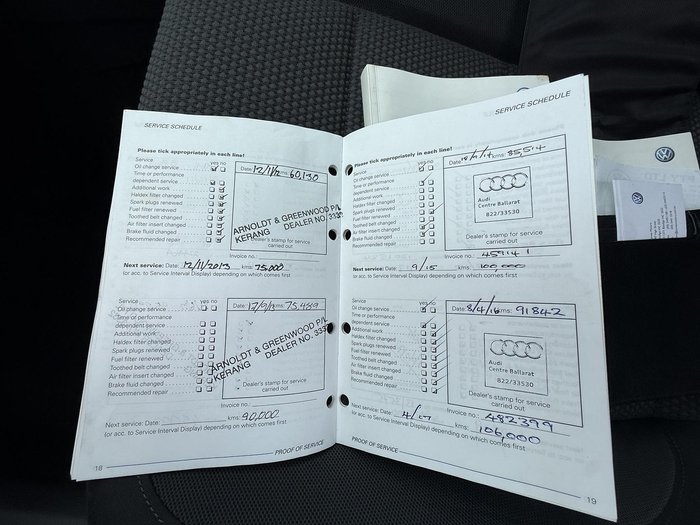 SERVICE SCHEDULE
Please tick appropriately in each line!
Service yes no
Oil change service
Time or performance
dependent service
Additional work
Haldex filter changed
Spark plugs renewed
Fuel filter renewed
Toothed belt changed
Air filter insert changed
Brake fluid changed
Recommended repair
Date: 12/11/12 kms: 60,130
ARNOLDT & GREENWOOD P/L
KERANG DEALER NO. 3335
Dealer's stamp for service
carried out
Invoice no.:
Next service: Date: 12/11/2013 kms: 75,000
(or acc. to Service Interval Display) depending on which comes first
Service yes no
Oil change service
Time or performance
dependent service
Additional work
Haldex filter changed
Spark plugs renewed
Fuel filter renewed
Toothed belt changed
Air filter insert changed
Brake fluid changed
Recommended repair
Date: 17/9/13 kms: 75,489
ARNOLDT & GREENWOOD P/L
KERANG DEALER NO. 3335
Dealer's stamp for service
carried out
Invoice no.:
Next service: Date: kms: 90,000
(or acc. to Service Interval Display) depending on which comes first
18
PROOF OF SERVICE
SERVICE SCHEDULE
Please tick appropriately in each line!
Service yes no
Oil change service
Time or performance
dependent service
Additional work
Haldex filter changed
Spark plugs renewed
Fuel filter renewed
Toothed belt changed
Air filter insert changed
Brake fluid changed
Recommended repair
Date: kms: 85,514
Audi
Centre Ballarat
822/33530
Dealer's stamp for service
carried out
Invoice no.: 451141
Next service: Date: 9/15 kms: 100,000
(or acc. to Service Interval Display) depending on which comes first
Service yes no
Oil change service
Time or performance
dependent service
Additional work
Haldex filter changed
Spark plugs renewed
Fuel filter renewed
Toothed belt changed
Air filter insert changed
Brake fluid changed
Recommended repair
Date: 8/4/16 kms: 91842
Audi
Centre Ballarat
822/33530
Dealer's stamp for service
carried out
Invoice no.: 482399
Next service: Date: 4/17 kms: 106,000
(or acc. to Service Interval Display) depending on which comes first
PROOF OF SERVICE
19